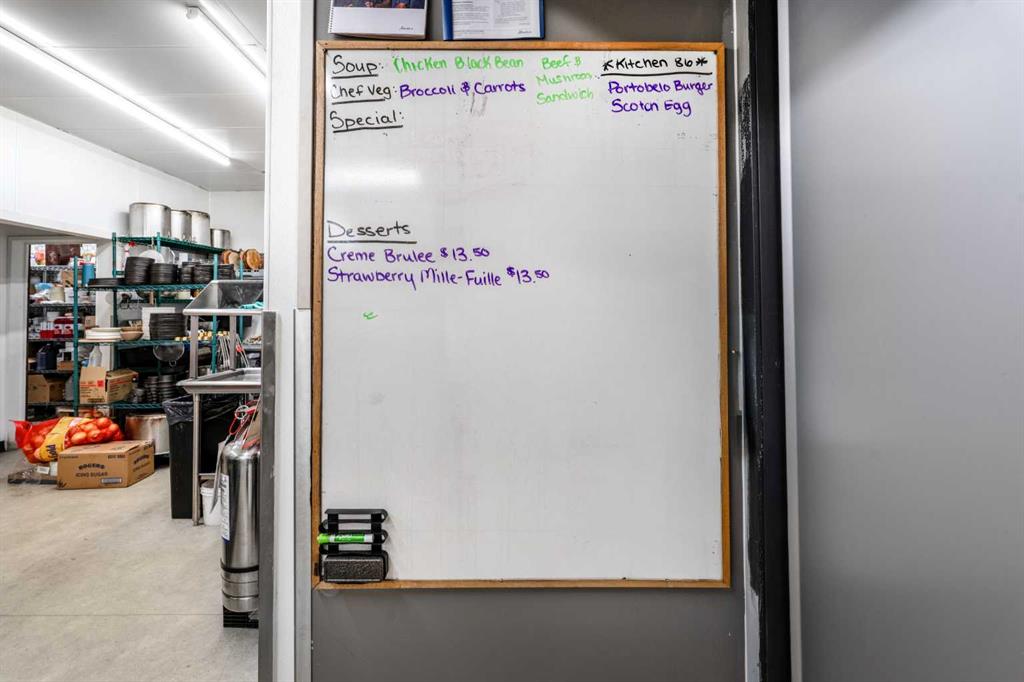 Soup: Chicken Black Bean
Chef Veg: Broccoli & Carrots
Special:
Beef &
Mushroom
Sandwich
*Kitchen 86*
Portobelo Burger
Scotch Egg
Desserts
Creme Brulee $13.50
Strawberry Mille-Fuille $13.50
ROGERS
ICING SUGAR